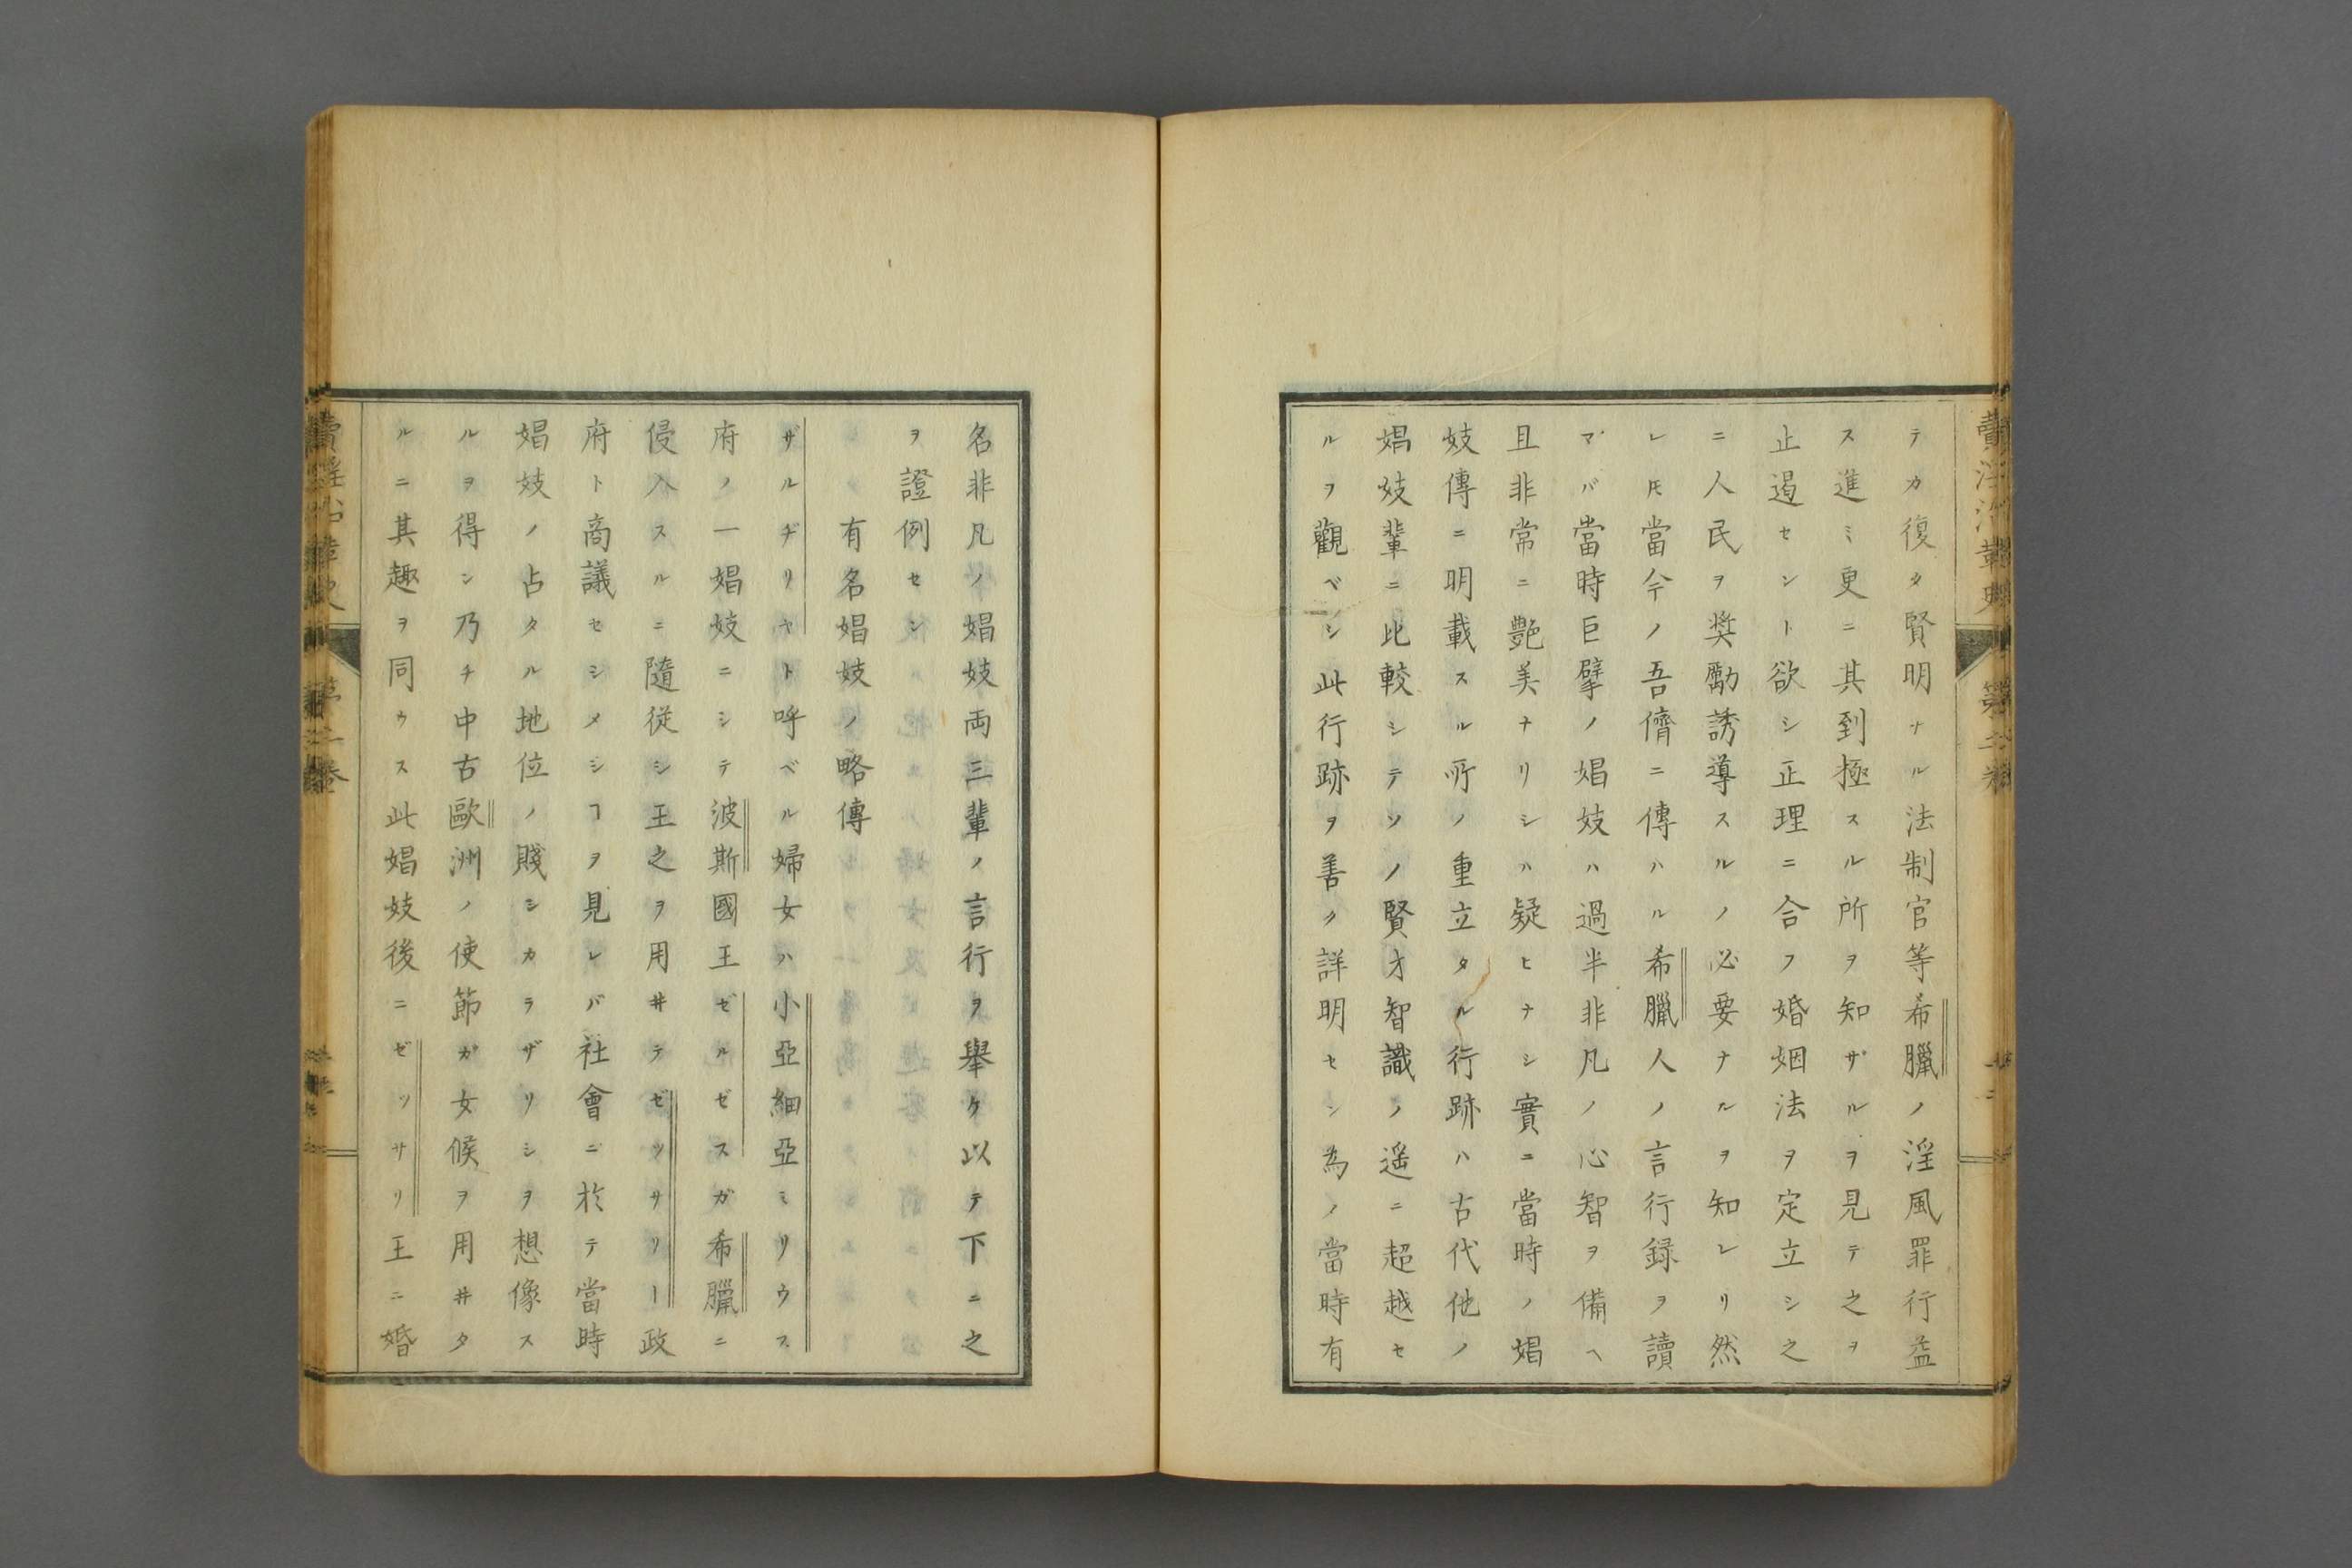 テカ復タ賢明ナル法制官等希臘ノ淫風罪行益
ス進ミ更ニ其到極スル所ヲ知ザルヲ見テ之ヲ
止遏セント欲シ正理ニ合フ婚姻法ヲ定立シ之
ニ人民ヲ奨勵誘導スルノ必要ナルヲ知レリ然
レ𪜈當今ノ吾儕ニ傳ハル希臘人ノ言行録ヲ讀
マバ當時巨擘ノ娼妓ハ過半非凡ノ心智ヲ備ヘ
且非常ニ艶美ナリシハ疑ヒナシ實ニ當時ノ娼
妓傳ニ明載スル所ノ重立タル行跡ハ古代他ノ
娼妓輩ニ比較シテソノ賢才智識ノ遥ニ超越セ
ルヲ觀ベシ此行跡ヲ善ク詳明セン為ノ當時有
名非凡ノ娼妓両三輩ノ言行ヲ舉ケ以テ下ニ之
ヲ證例セン
有名娼妓ノ略傳
ザルヂリヤト呼ベル婦女ハ小亞細亞ミリウス
府ノ一娼妓ニシテ波斯國王ゼルゼスガ希臘ニ
侵入スルニ隨従シ王之ヲ用井テゼツサリー政
府ト商議セシメシヿヲ見レバ社會ニ於テ當時
娼妓ノ占タル地位ノ賤シカラザリシヲ想像ス
ルヲ得ン乃チ中古歐洲ノ使節ガ女候ヲ用井タ
ルニ其趣ヲ同ウス此娼妓後ニゼツサリ王ニ婚